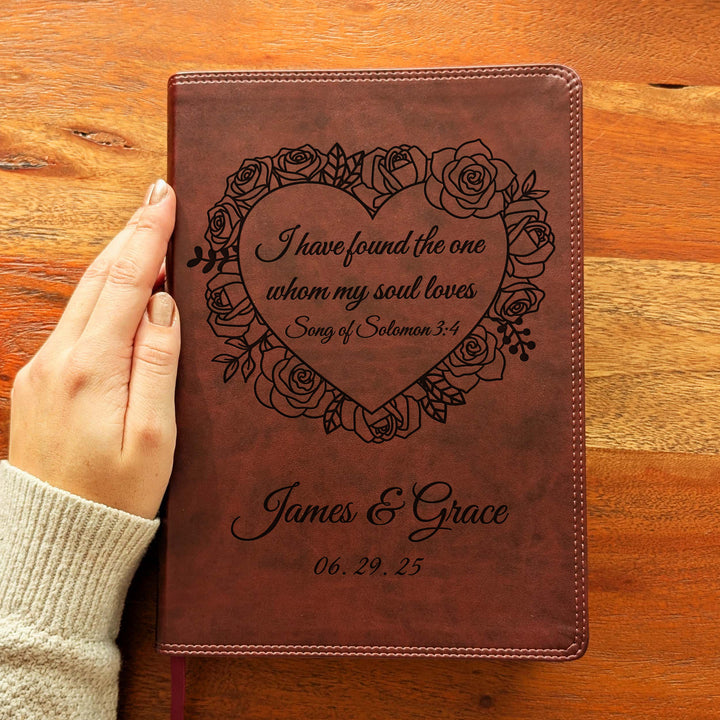 I have found the one
whom my soul loves
Song of Solomon 3:4
James & Grace
06.29.25